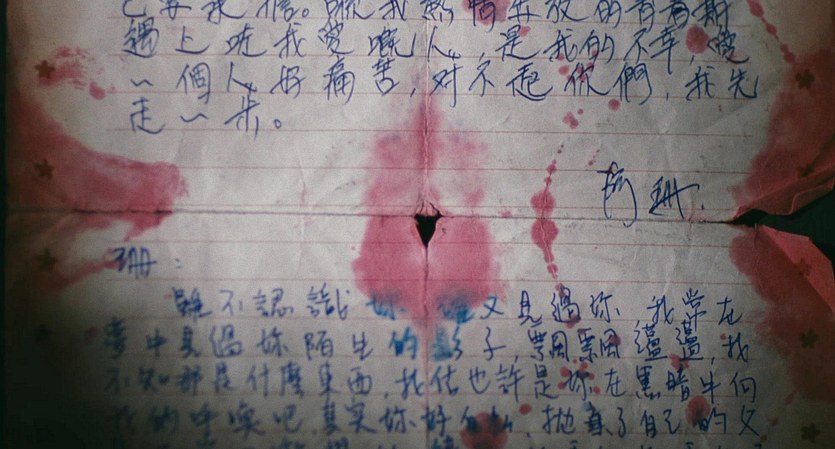 我熱情 放的青春期
遇上咗我愛嘅人，是我的不幸，愛
一個人好痛苦，对不起你們，我先
走一步。
阿珊.
珊：
雖不認識妳 又見過妳，我常在
夢中見過妳陌生的影子，飄飄蕩蕩，我
不知那是什麼東西，我估也許是妳在黑暗中向
我的呼喚吧，其實妳好自私，拋棄了自己的父